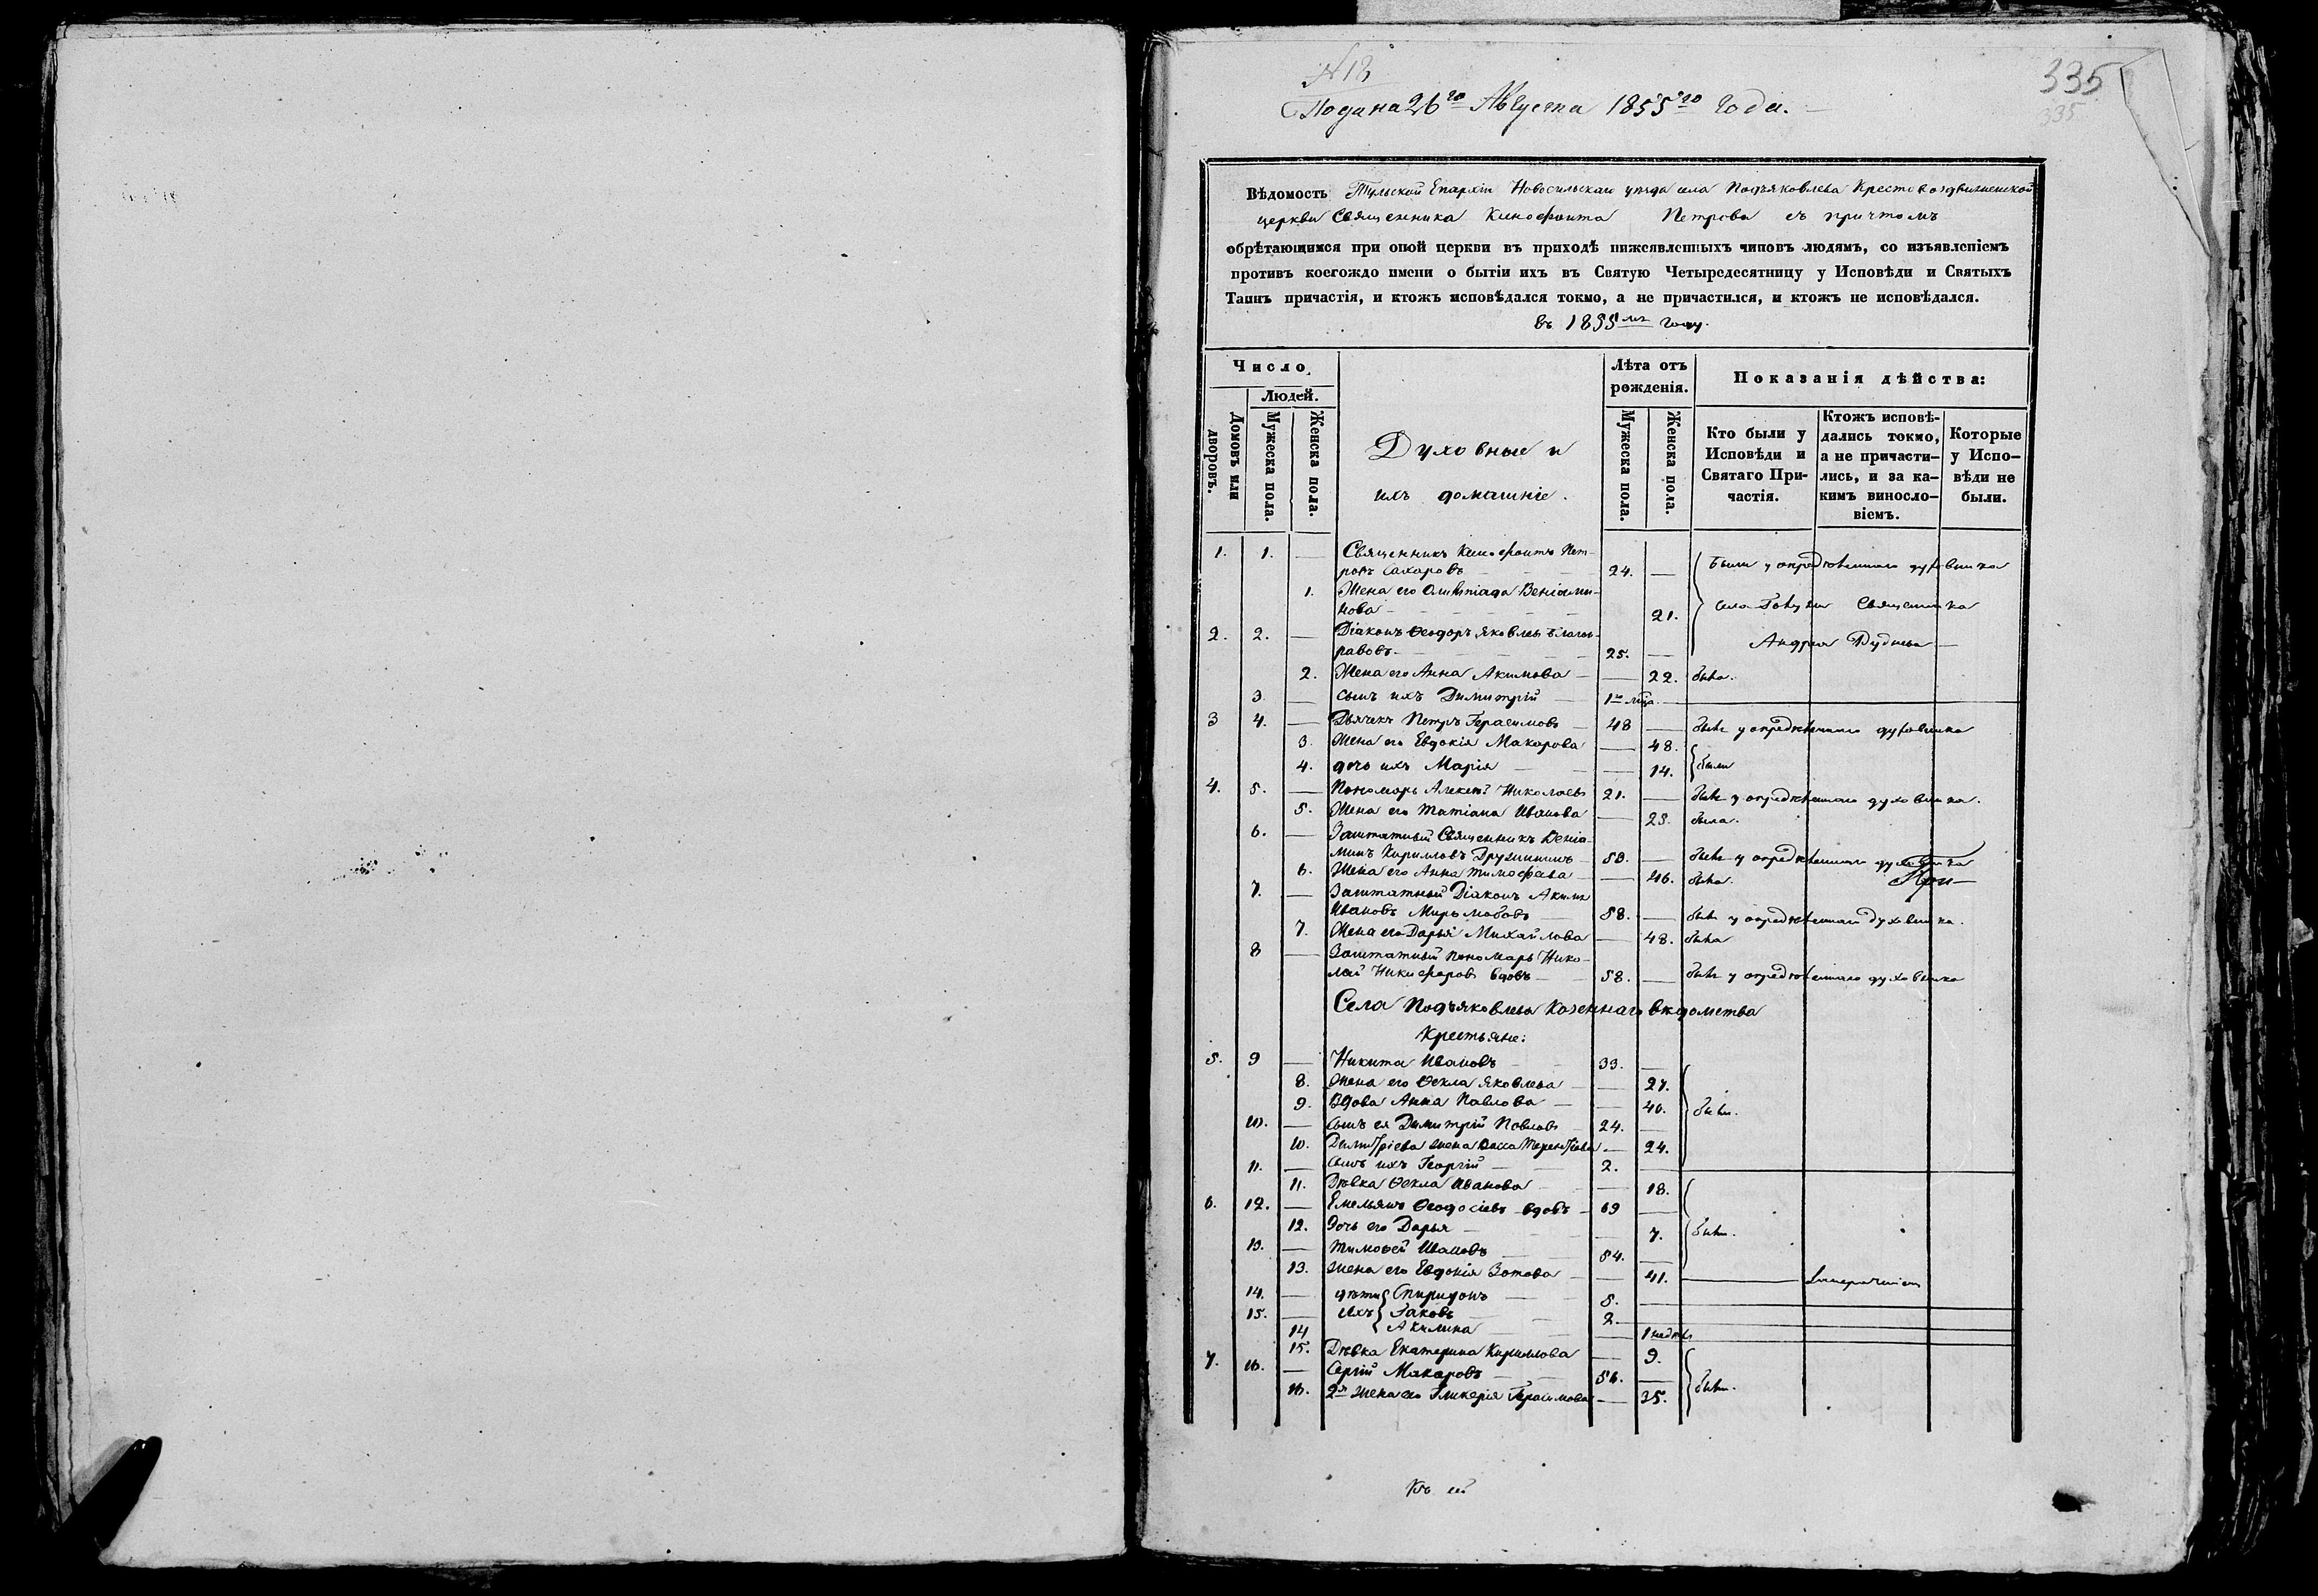 N 18
335
335
Подана 26го Августа 1855го года.
Вѣдомость Тульской Епархіи Новосильскаго уѣзда села Подъяковлева Крестовоздвиженской
церкви Священника Кинофонта Петрова съ причтомъ
обрѣтающимся при оной церкви въ приходѣ нижеявленныхъ чиновъ людямъ, со изъявленіемъ
противъ коегождо имени о бытіи ихъ въ Святую Четыредесятницу у Исповѣди и Святыхъ
Таинъ причастія, и ктожъ исповѣдался токмо, а не причастился, и ктожъ не исповѣдался.
въ 1855мъ году.
Число.
Людей.
Домовъ или дворовъ.
Мужеска пола.
Женска пола.
Духовные и
ихъ домашніе.
Лѣта отъ рожденія.
Мужеска пола.
Женска пола.
Показанія дѣйства:
Кто были у Исповѣди и Святаго Причастія.
Ктожъ исповѣдались токмо, а не причастились, и за какимъ винословіемъ.
Которые у Исповѣди не были.
1. 1. — Священникъ Кинофонтъ Пет-
ровъ Сахаровъ 24. — Были у опредѣленнаго духовника
1. Жена его Олимпіада Веніами-
нова 21. села Священника
2. 2. — Діаконъ Ѳеодоръ Яковлевъ Благон-
равовъ 25. — Андрея Руднева
2. Жена его Анна Акимова — 22. была.
3. — сынъ ихъ Димитрій 1го
3 4. — Дьячекъ Петръ Герасимовъ 48 — былъ у опредѣленнаго духовника
3. Жена его Евдокія Макарова — 48.
4. дочь ихъ Марія — 14. были
4. 5. — Пономарь Алексѣй Николаевъ 21. — былъ у опредѣленнаго духовника.
5. Жена его Татіана Иванова — 23. была.
6. — Заштатный Священникъ Веніа-
минъ Кирилловъ Дружининъ 53. — былъ у опредѣленнаго духовника
6. Жена его Анна Тимофеева — 46. была.
7. — Заштатный Діаконъ Акимъ
Ивановъ 58. — былъ у опредѣленнаго духовника.
7. Жена его Дарья Михайлова — 48. была
8 — Заштатный пономарь Нико-
лай Никифоровъ вдовъ 58. — былъ у опредѣленнаго духовника
Села Подъяковлева Казеннаго вѣдомства
Крестьяне:
5. 9 — Никита Ивановъ 33. —
8. Жена его Ѳекла Яковлева — 27.
9. Вдова Анна Павлова — 40. были.
10. — сынъ ея Димитрій Павловъ 24. —
10. Димитріева жена Васса Терентіева — 24.
11. — сынъ ихъ Георгій 2. —
11. Дѣвка Ѳекла Иванова — 18.
6. 12. — Емельянъ Ѳеодосіевъ вдовъ 69 —
12. Дочь его Дарья — 7. были.
13. — Тимоѳей Ивановъ 54. —
13. Жена его Евдокія Зотова — 41. —
14. — дѣти Спиридонъ 5. —
15. — ихъ Іаковъ 2. —
14 Акилина — 1 недѣль
15. Дѣвка Екатерина Кириллова — 9.
7. 16. — Сергій Макаровъ 56. —
16. 2я жена его Гликерія Герасимова — 35. были.